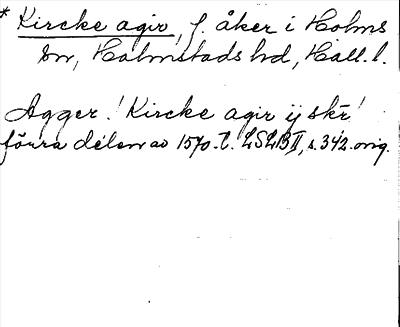 * Kircke agir, f. åker i Holms
sn, Halmstads hd, Hall. l.
Agger! Kircke agir ij skr̄!
förra délen av 1570-t. LSLB II, s. 342. orig.